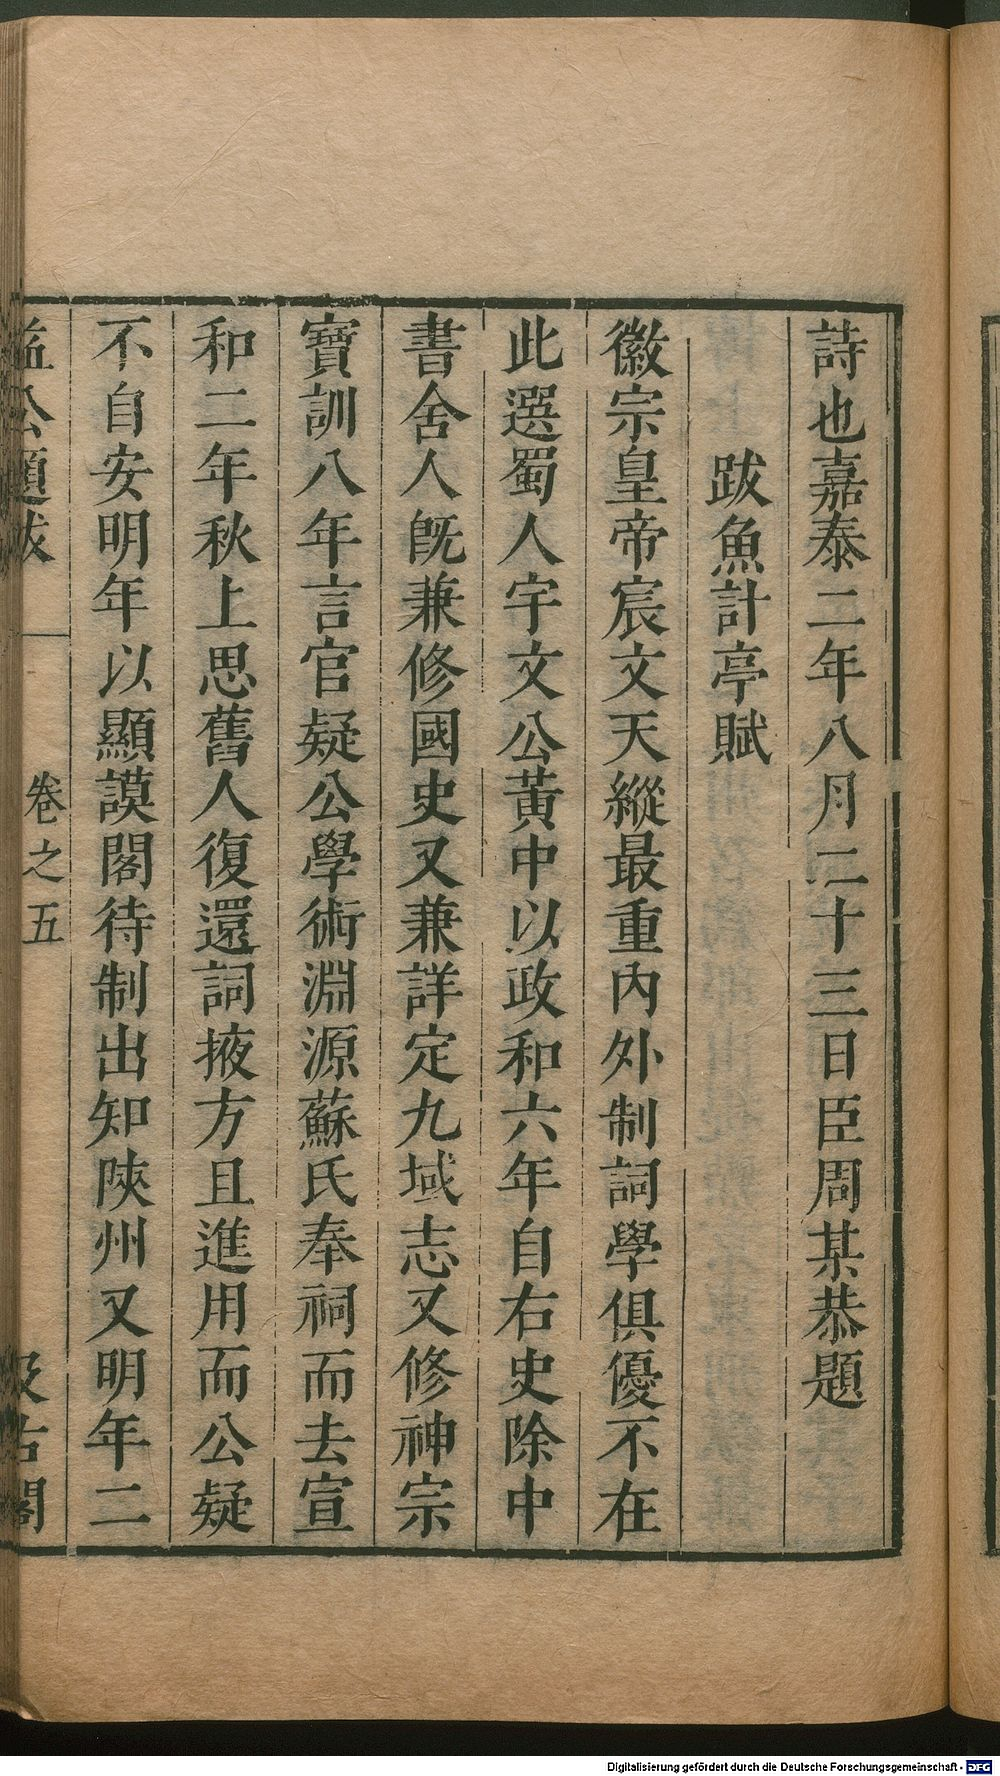 詩也嘉泰二年八月二十三日臣周某恭題
跋魚計亭賦
徽宗皇帝宸文天縱最重內外制詞學俱優不在
此選蜀人宇文公黃中以政和六年自右史除中
書舍人旣兼修國史又兼詳定九域志又修神宗
寶訓八年言官疑公學術淵源蘇氏奉祠而去宣
和二年秋上思舊人復還詞掖方且進用而公疑
不自安明年以顯謨閣待制出知陝州又明年二
益公題跋 卷之五 汲古閣
Digitalisierung gefördert durch die Deutsche Forschungsgemeinschaft - DFG